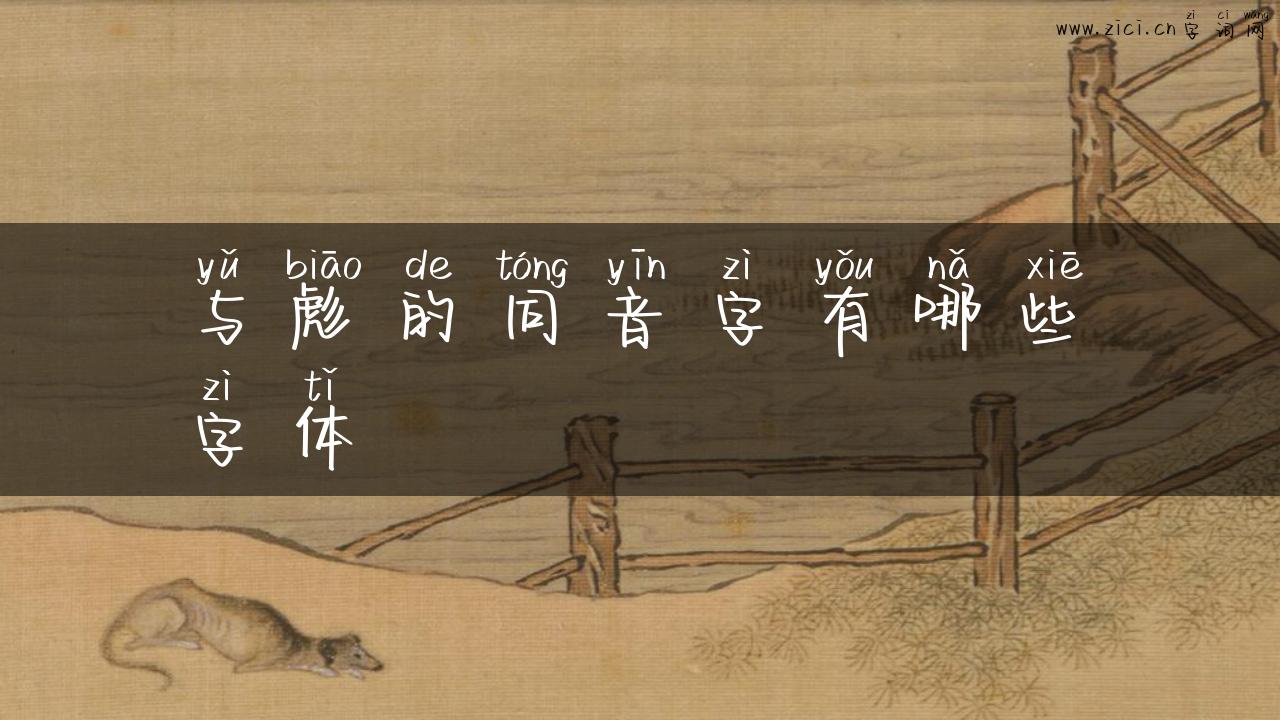 zì cí wǎng
www.zici.cn 字词网
yǔ biāo de tóng yīn zì yǒu nǎ xiē
与彪的同音字有哪些
zì tǐ
字体